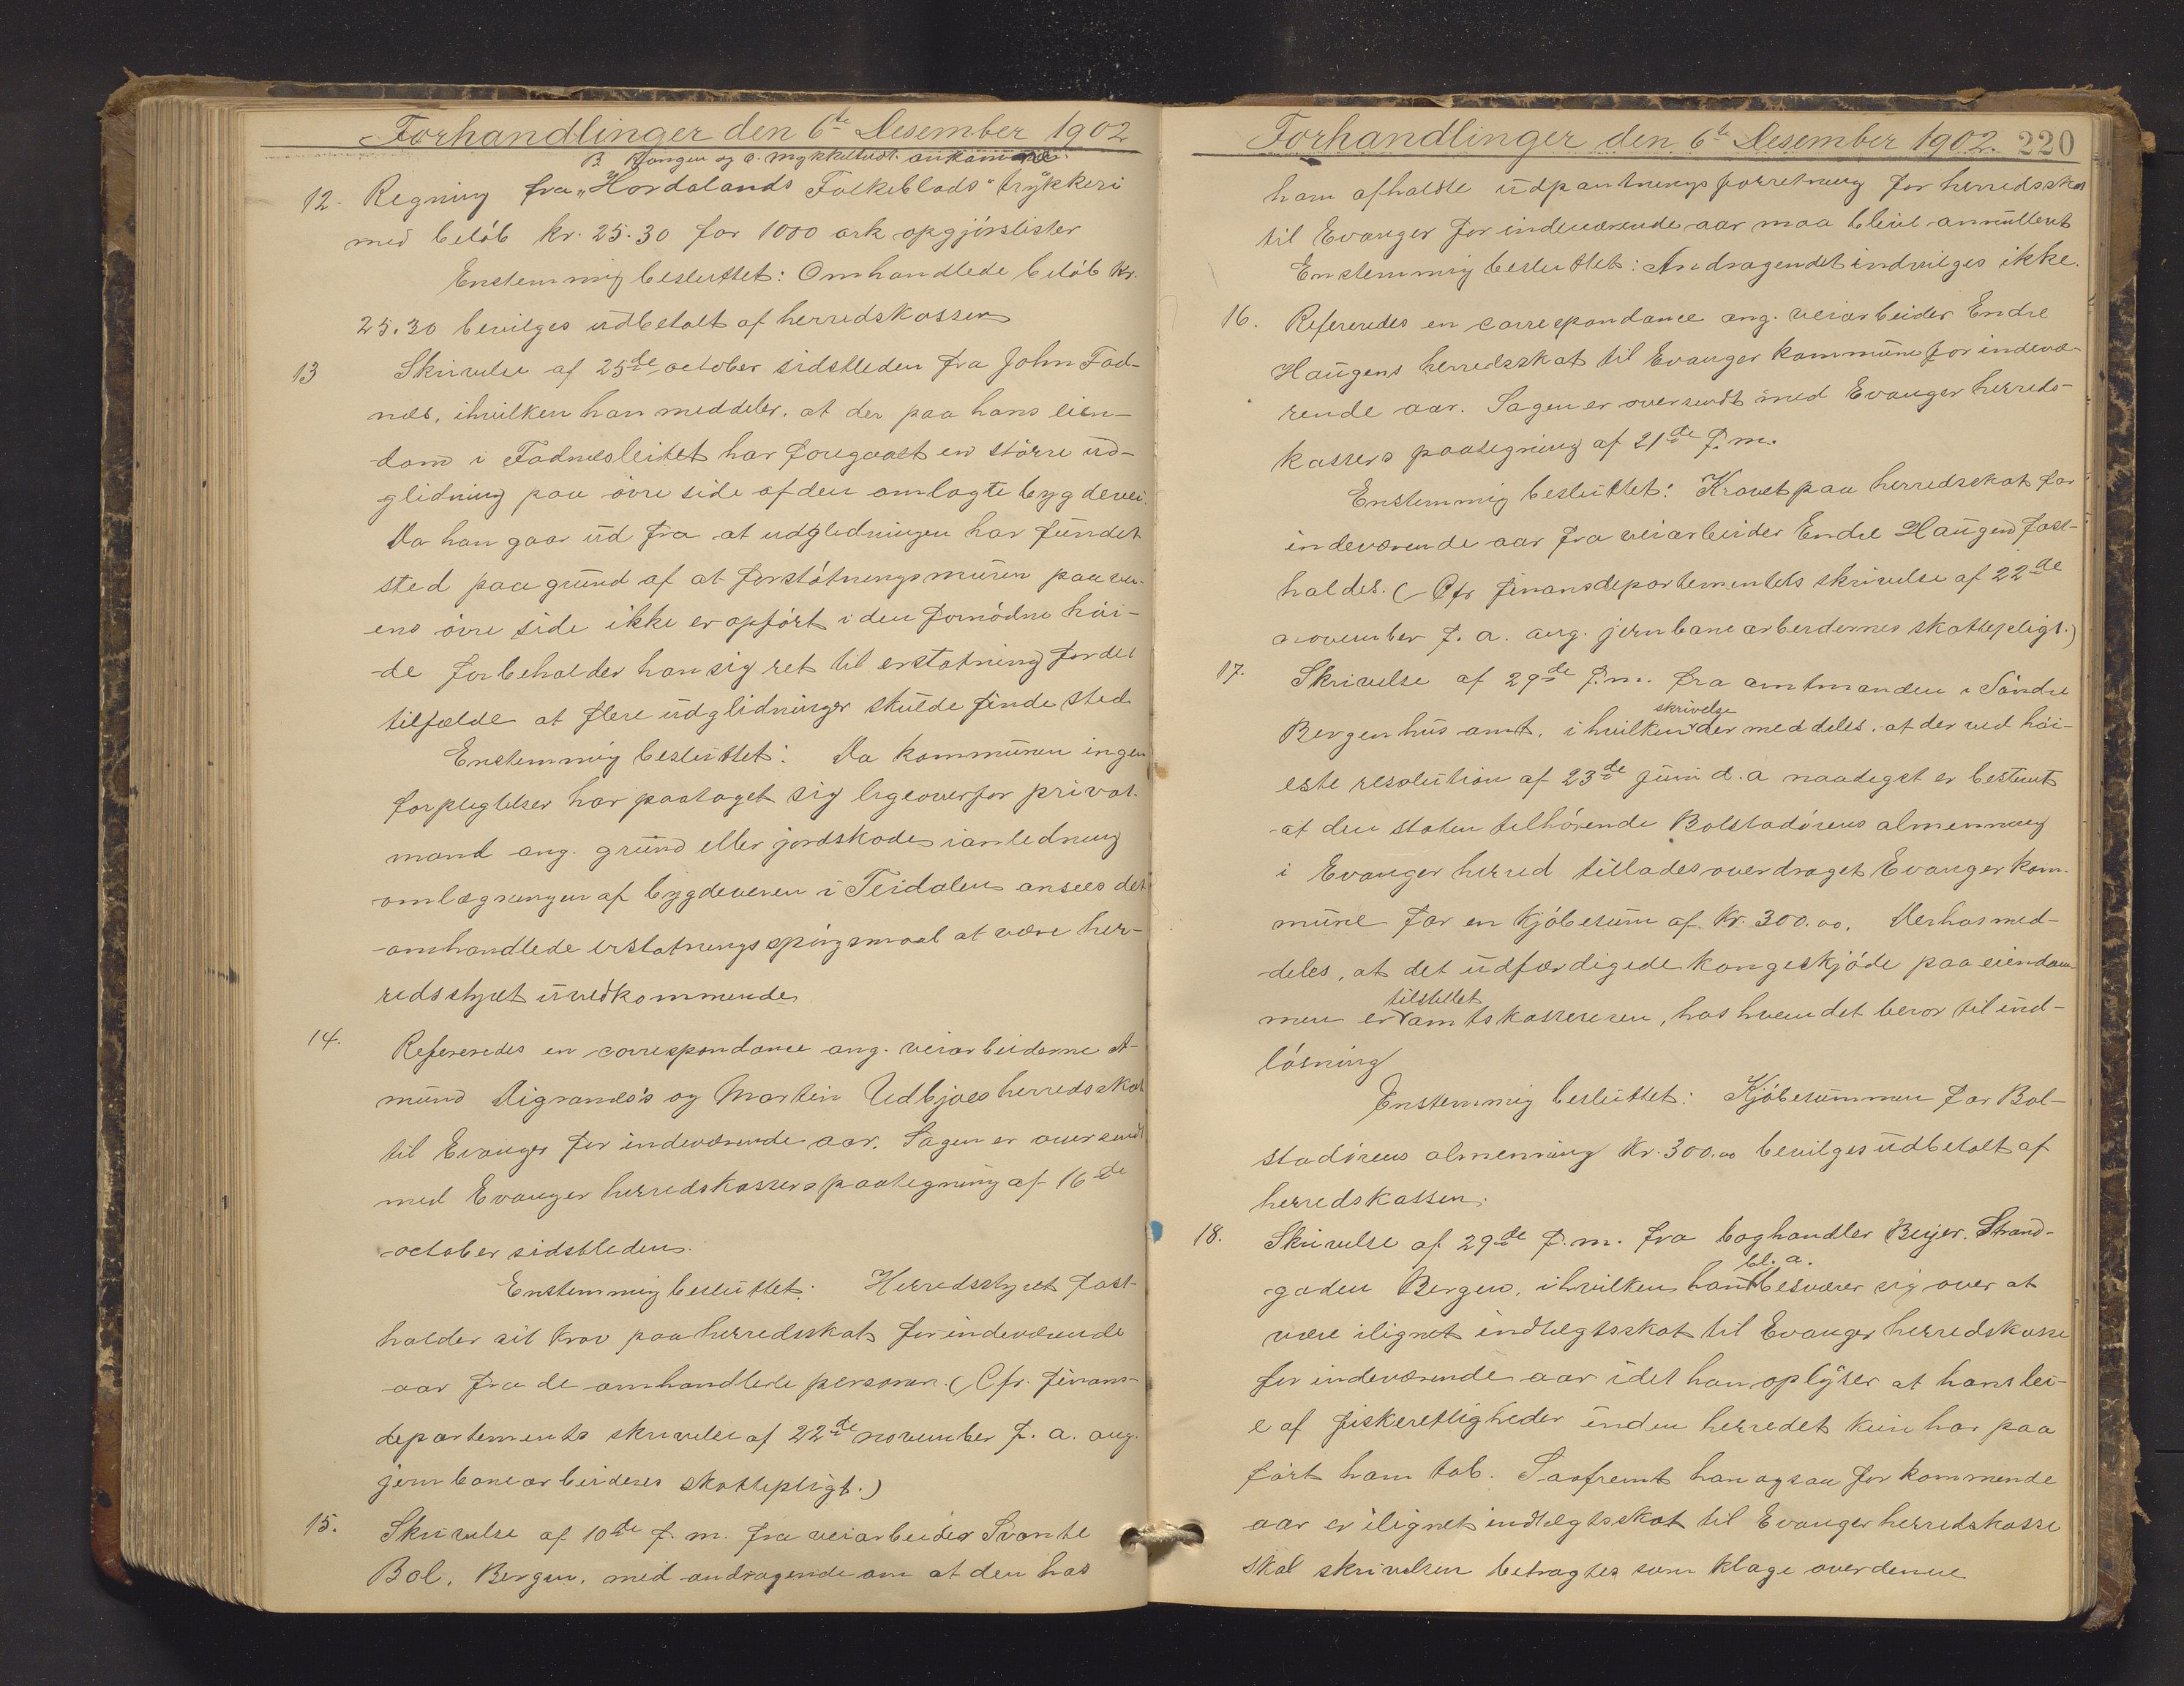 Forhandlinger den 6te Desember 1902
B. Vangen og O. Mykkeltvedt ankom
12. Regning fra „Hordalands Folkeblads" trykkeri
med beløb kr. 25.30 for 1000 ark opgjørslister
Enstemmig besluttet: Omhandlede beløb kr.
25.30 bevilges udbetalt af herredskassen
13 Skrivelse af 25de october sidstleden fra John Fad-
næs, ihvilken han meddeler, at der paa hans eien-
dom i Fadnesleitet har foregaaet en større ud-
glidning paa øvre side af den omlagte bygdevei.
Da han gaar ud fra at udglidningen har fundet
sted paa grund af at forstøtningsmuren paa vei-
ens øvre side ikke er opført i den fornødne høi-
de forbeholder han sig ret til erstatning for det
tilfælde at flere udglidninger skulde finde sted
Enstemmig besluttet: Da kommunen ingen
forpligtelser har paataget sig ligeoverfor privat-
mand ang. grund eller jordskade i anledning
omlægningen af bygdeveien i Teidalen ansees det
omhandlede erstatningsspørgsmaal at være her-
redsstyret uvedkommende
14. Refereredes en correspondance ang. veiarbeiderne A-
mund Digranæs's og Martin Udbjoes herredsskat
til Evanger for indeværende aar. Sagen er oversendt
med Evanger herredskassers paategning af 16de
october sidstleden.
Enstemmig besluttet: Herredsstyret fast-
holder sit krav paa herredsskat for indeværende
aar fra de omhandlede personer. (Cfr. finans-
departements skrivelse af 22de november f. a. ang.
jernbanearbeideres skattepligt.)
15. Skrivelse af 10de f. m. fra veiarbeider Svante
Bol, Bergen, med andragende om at den hos
Forhandlinger den 6te Desember 1902. 220
ham afholdte udpantningsforretning for herredsskat
til Evanger for indeværende aar maa blive annulleret
Enstemmig besluttet: Andragendet indvilges ikke.
16. Refereredes en correspondance ang. veiarbeider Endre
Haugens herredsskat til Evanger kommune for indevæ-
rende aar. Sagen er oversendt med Evanger herreds-
kassers paategning af 21de f. m.
Enstemmig besluttet: Kravet paa herredsskat for
indeværende aar fra veiarbeider Endre Haugen fast-
holdes. (Cfr finansdepartementets skrivelse af 22de
november f. a. ang. jernbanearbeidernes skattepligt.)
17. Skrivelse af 29de f.m. fra amtmanden i Søndre
skrivelse
Bergenhus amt, i hvilken der meddeles, at der ved høi-
este resolution af 23de juni d. a naadigst er bestemt
at den staten tilhørende Bolstadørens almenning
i Evanger herred tillades overdraget Evanger kom-
mune for en kjøbesum af kr. 300.00. Derhos med-
deles, at det udfærdigede kongeskjøde paa eiendom-
tilstillet
men er amtskassereren, hos hvem det beror til ind-
løsning
Enstemmig besluttet: Kjøbesummen for Bol-
stadørens almenning kr. 300.00 bevilges udbetalt af
herredskassen.
18. Skrivelse af 29de f. m. fra boghandler Beyer. Strand-
bl. a.
gaden Bergen, ihvilken han besværer sig over at
være ilignet indtægtsskat til Evanger herredskasse
for indeværende aar idet han oplyser at hans lei-
e af fiskerettigheder inden herredet kun har paa
ført ham tab. Saafremt han ogsaa for kommende
aar er ilignet indtægtsskat til Evanger herredskasse
skal skrivelsen betragtes som klage over denne